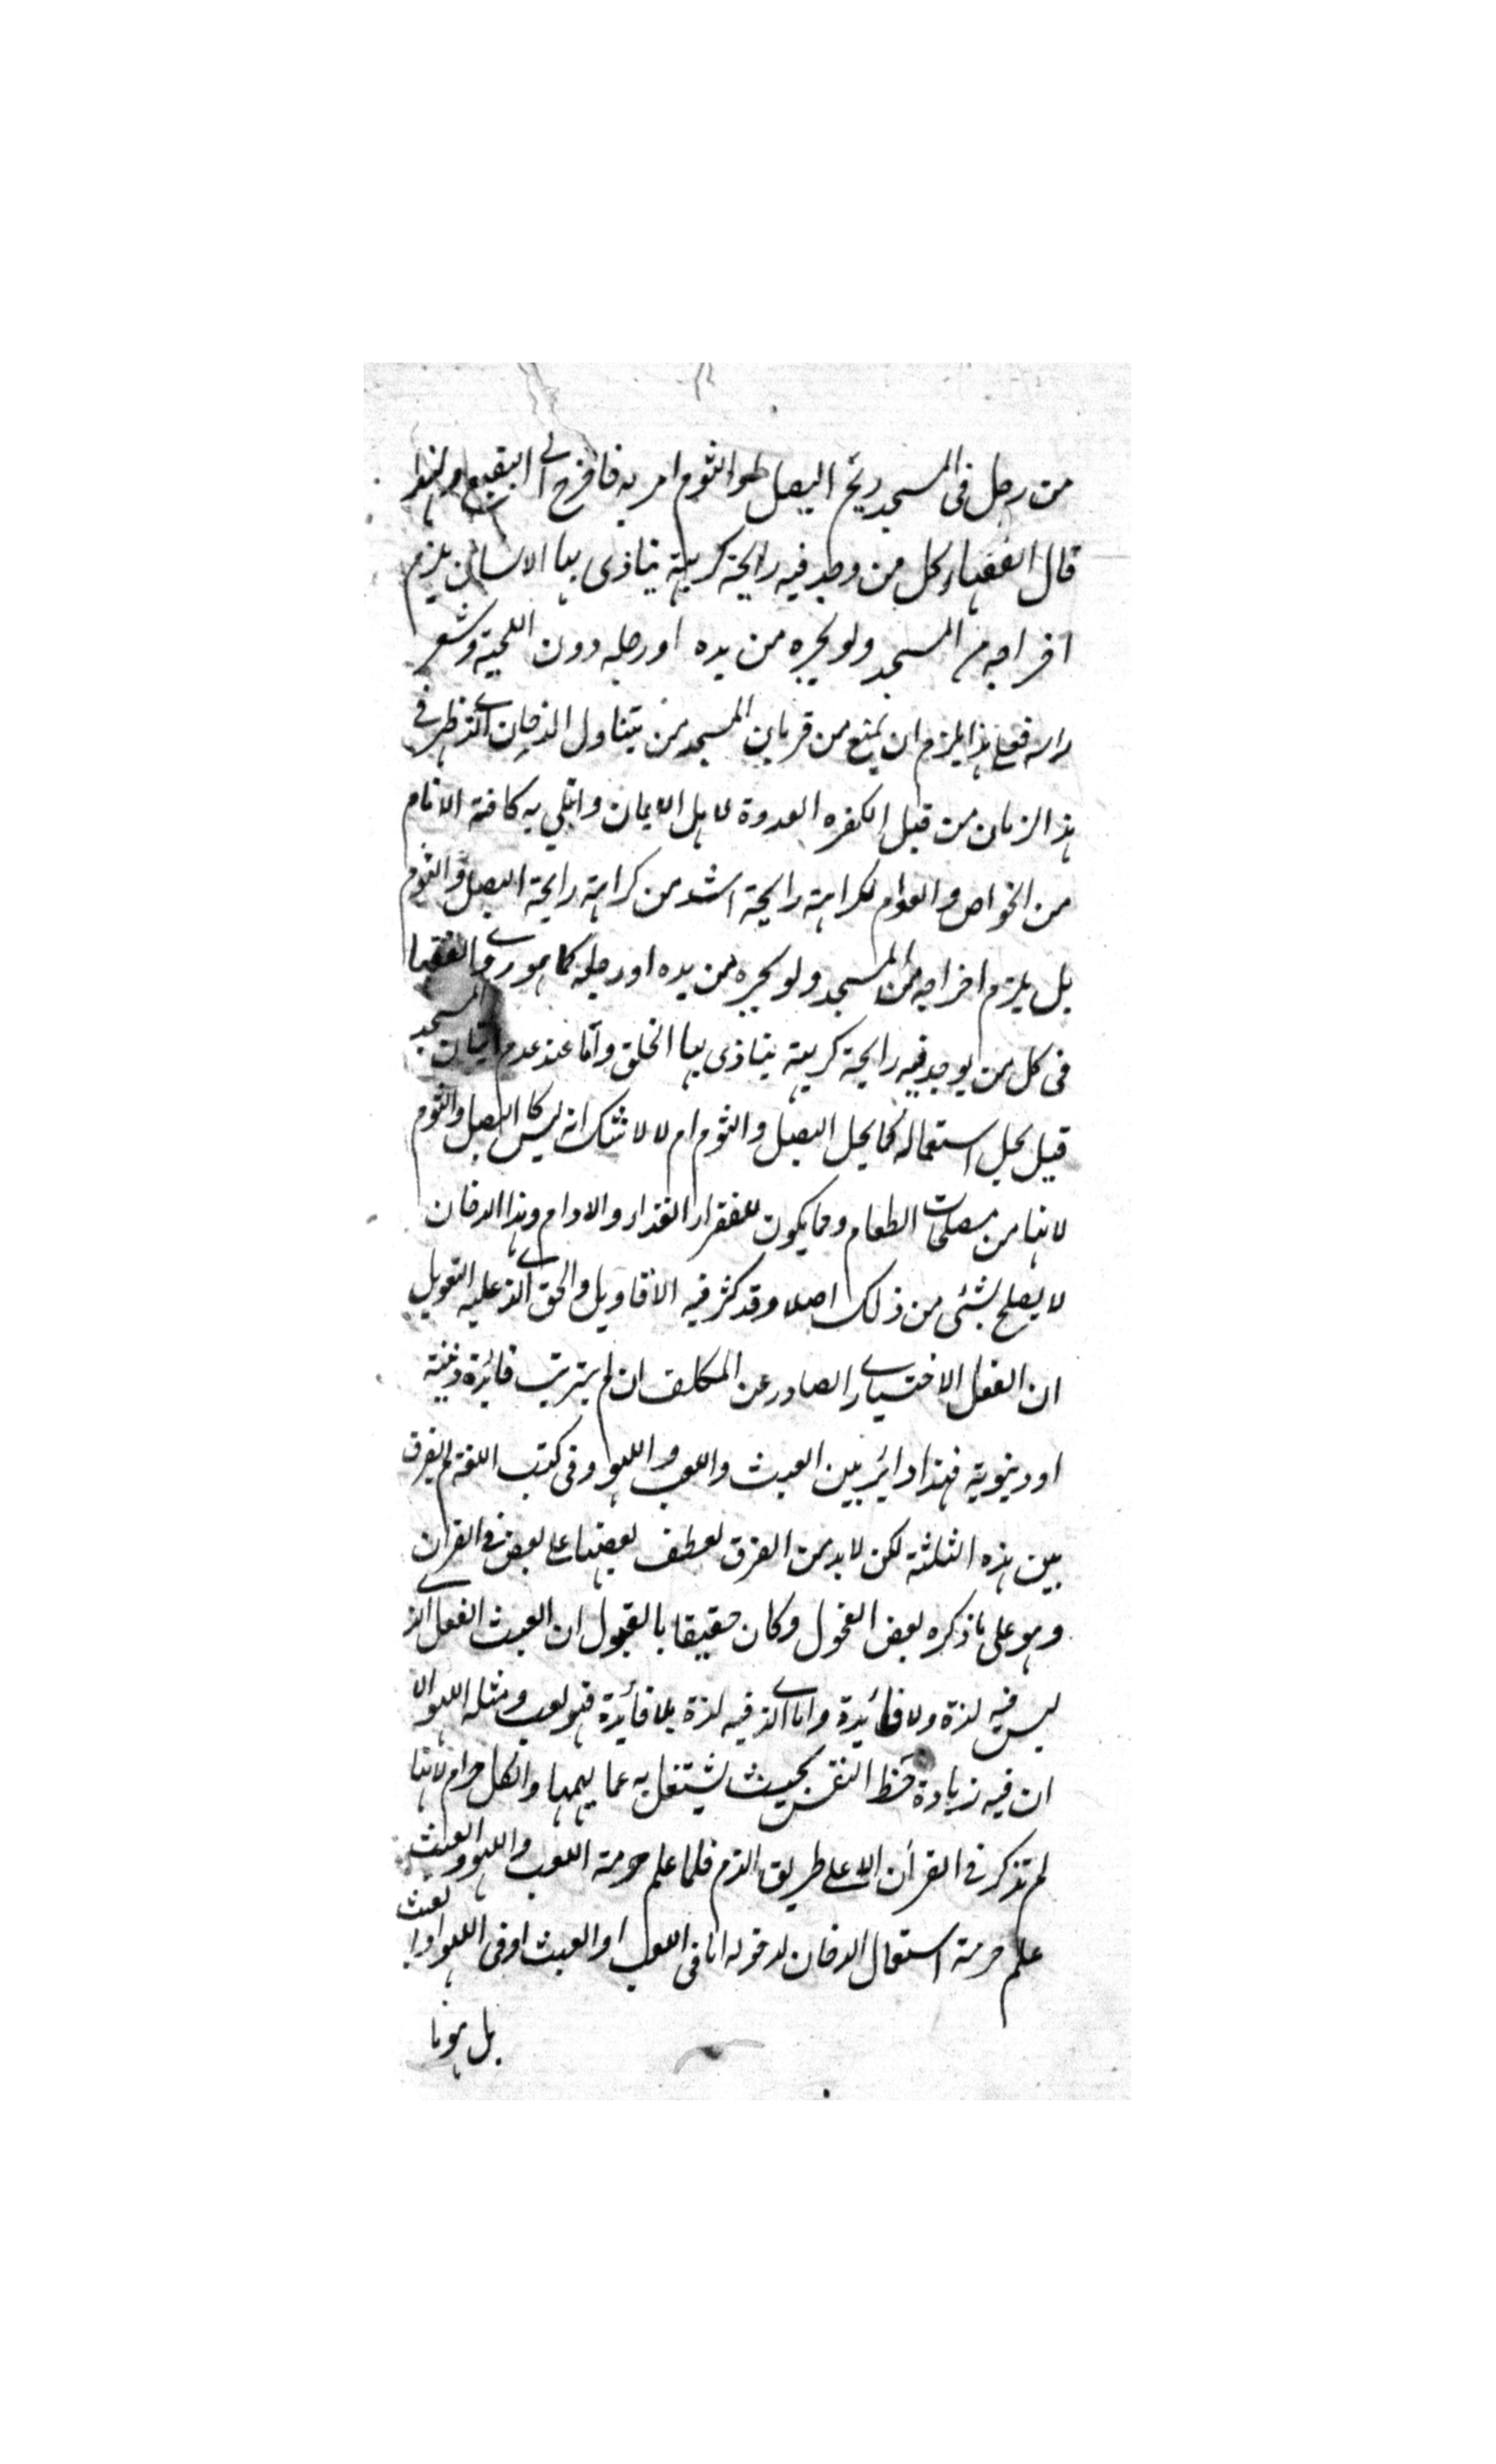 من رجل فى المسجد ريح البصل والثوم امر به فاخرج الى البقيع ولهذا
قال الفقهاء كل من وجد فيه رايحة كريهة يتاذى بها الانسان يلزم
اخراجه من المسجد ولو بجره من يده او رجله دون اللحية وشعر
راسه فعلى هذا يلزم ان يمنع من قربان المسجد من يتناول الدخان الذى ظهر فى
هذا الزمان من قبل الكفرة العدوة لاهل الايمان وابتلى به كافة الانام
من الخواص والعوام لكراهة رايحة اشد من كراهة رايحة البصل والثوم
بل يلزم اخراجه من المسجد ولو بجره من يده او رجله كما هو روى الفقها
فى كل من يوجد فيه رايحة كريهة يتاذى بها الخلق واما عند عدم اتيان المسجد
قيل يحل استعماله كما يحل البصل والثوم ام لا لا شك انه ليس كالبصل والثوم
لانها من مصلحات الطعام ومما يكون للفقراء الغذاء والادام وهذا الدخان
لا يصلح لشئ من ذلك اصلا وقد كثر فيه الاقاويل والحق الذى عليه التعويل
ان الفعل الاختيارى الصادر عن المكلف ان لم يترتب فائدة دينية
او دنيوية فهذا دائر بين العبث واللعب واللهو وفى كتب اللغة لم يفرق
بين هذه الثلثة لكن لا بد من الفرق لعطف بعضها على بعض فى القران
وهو على ما ذكره بعض الفحول وكان حقيقا بالقبول ان العبث الفعل الذى
ليس فيه لذة ولا فائدة واما الذى فيه لذة بلا فائدة فهو لعب ومثله اللهو الا
ان فيه زيادة حظ النفس بحيث يشتغل به عما يهمها والكل حرام لانها
لم تذكر فى القرآن الا على طريق الذم فلما علم حرمة اللعب واللهو والعبث
علم حرمة استعمال الدخان لدخوله اما فى اللعب او العبث او فى اللهو
بل هو ما